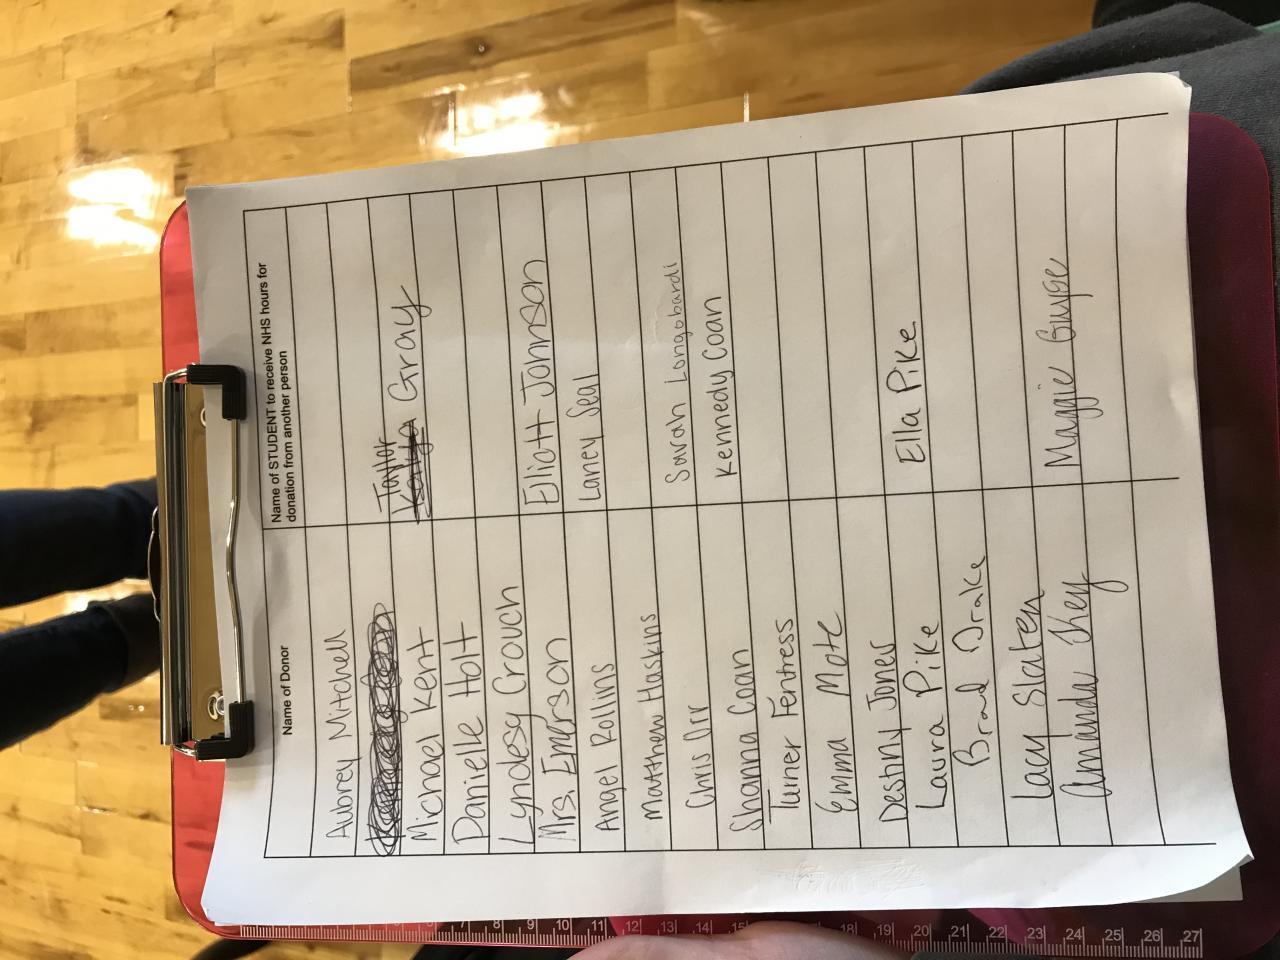 Name of Donor
Name of STUDENT to receive NHS hours for
donation from another person
Aubrey Mitchell
Michael Kent Taylor Gray
Danielle Holt
Lyndesy Crouch
Mrs. Emerson Eliott Johnson
Angel Rollins Laney Seal
Matthew Haskins
Chris Orr Sarah Longobardi
Shanna Coan Kennedy Coan
Turner Fentress
Emma Mote
Destiny Jones
Laura Pike Ella Pike
Brad Drake
Lacy Slaten
Amanda Key Maggie Guyse
5 6 7 8 9 10 11 12 13 14 15 18 19 20 21 22 23 24 25 26 27